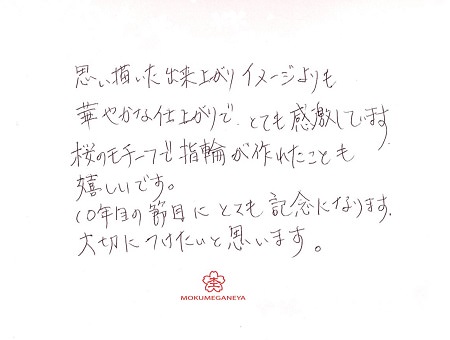 思い描いた出来上がりイメージよりも
華やかな仕上がりで、とても感激しています
桜のモチーフで指輪が作れたことも
嬉しいです。
10年目の節目にとても記念になります.
大切につけたいと思います。
MOKUMEGANEYA